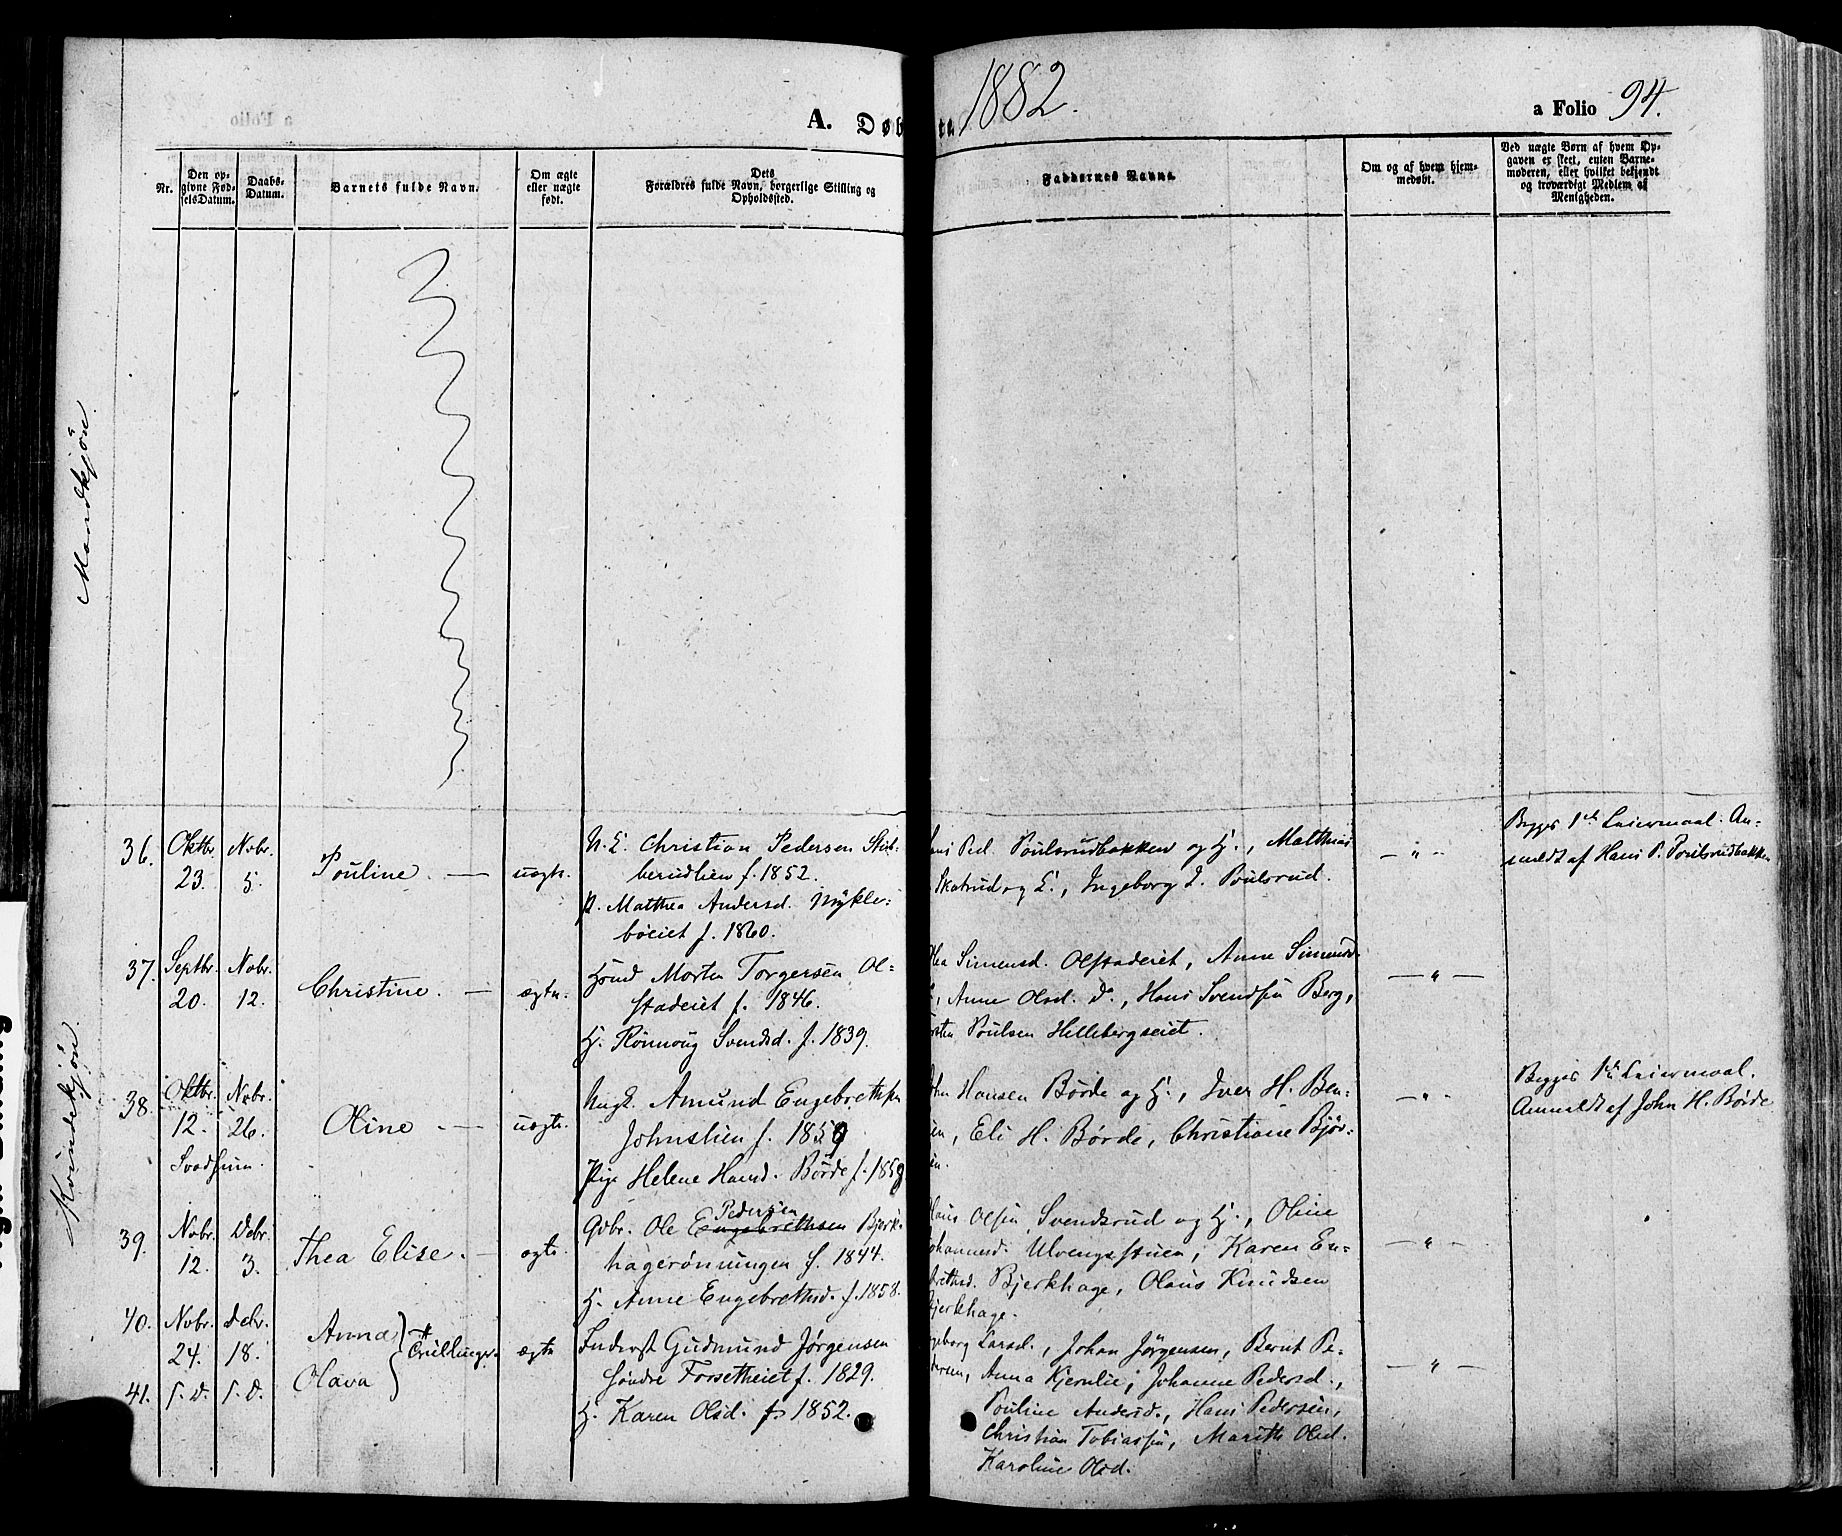 A. Døb
te 1882.
a Folio 94.
Nr.
Den op-
givne Fød-
selsDatum.
Daabs-
Datum.
Barnets fulde Navn.
Om ægte
eller uægte
født.
Dets
Forældres fulde Navn, borgerlige Stilling og
Opholdssted.
Faddernes Navne.
Om og af hvem hjem-
medøbt.
Ved uægte Børn af hvem Op-
gaven er skeet, enten Barne-
moderen, eller hvilket bekjendt
og troværdigt Medlem af
Menigheden.
Mandkjøn.
Kvindekjøn.
36.
Oktbr.
23.
Novbr.
5.
Pouline. —
uægte.
U. E. Christian Pedersen
berudlien f. 1852.
P. Mathea Andersd. Mykle-
bøeiet f. 1860.
Ped. Poulsrudbakken og H., Matthias
Skatrud og E., Ingeborg J. Poulsrud.
— " —
Begges 1ste Leiermaal. An-
meldt af Hans P. Poulsrudbakken
37.
Septbr.
20.
Novbr.
12.
Christine. —
ægte.
Hmd Morten Torgersen Ol-
stadeiet f. 1846.
H. Rönnoug Svendsd. f. 1839.
Simensd. Olstadeiet, Anne Simensd.
Anne Olsd. D., Hans Svendsen Berg,
Poulsen Hillebergseiet.
— " —
38.
Oktbr.
12.
Novbr.
26.
Svadsum.
Oline —
uægte.
Ungk. Amund Engebrethsen
Johnslien f. 1859
Pige Helene Hansd. Börde f. 1858
Hansen Börde og H., Iver H. Ben-
Eli H. Börde, Christiane Björ-
— " —
Begges 1ste Leiermaal.
Anmeldt af John H. Börde
39.
Novbr.
12.
Debr.
3.
Thea Elise. —
ægte.
Pedersen
Gdbr. Ole Engebrethsen Bjerk-
hagerönningen f. 1844.
H. Anne Engebrethsd. f. 1858.
Olsen Svendsrud og H., Oline
Ulvengsstuen, Karen En-
Bjerkhage, Olaus Knudsen
Bjerkhage.
— " —
40.
Novbr.
24.
Debr.
18.
Anna
Olava
Tvillinger
ægte
41.
s. D.
s. D.
Inderst Gudmund Jørgensen
söndre Forsetheiet f. 1829.
H. Karen Olsd. f. 1852.
Larsd., Johan Jörgensen, Bernt Pe-
Anna Kjernlie, Johanne Pedersd.,
Pouline Andersd., Hans Pedersen,
Christian Tobiassen, Marith Olsd.
Karoline Olsd.
— " —